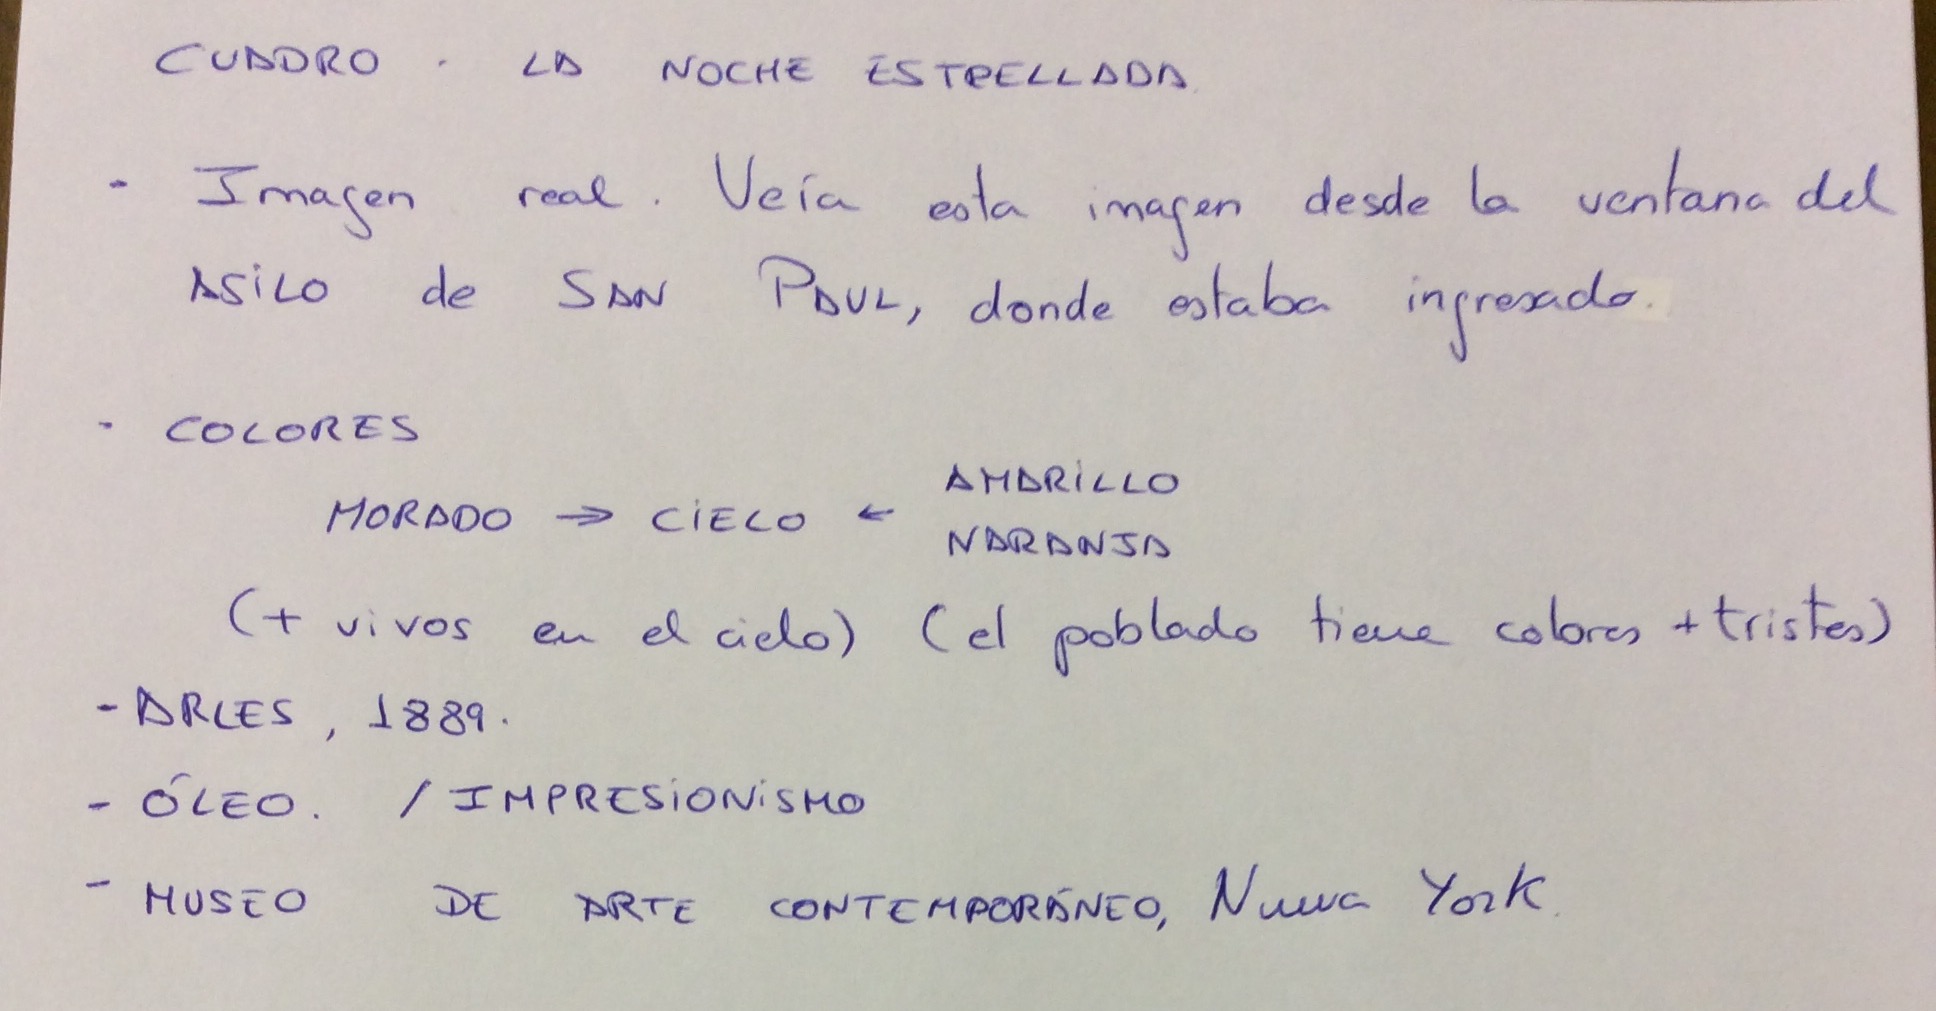 CUADRO . LA NOCHE ESTRELLADA
- Imagen real. Veía esta imagen desde la ventana del
ASILO de SAN PAUL, donde estaba ingresado.
- COLORES
AMARILLO
MORADO → CIELO ←
NARANJA
(+ vivos en el cielo) (el poblado tiene colores + tristes)
- ARLES, 1889.
- ÓLEO. / IMPRESIONISMO
- MUSEO DE ARTE CONTEMPORÁNEO, Nueva York.